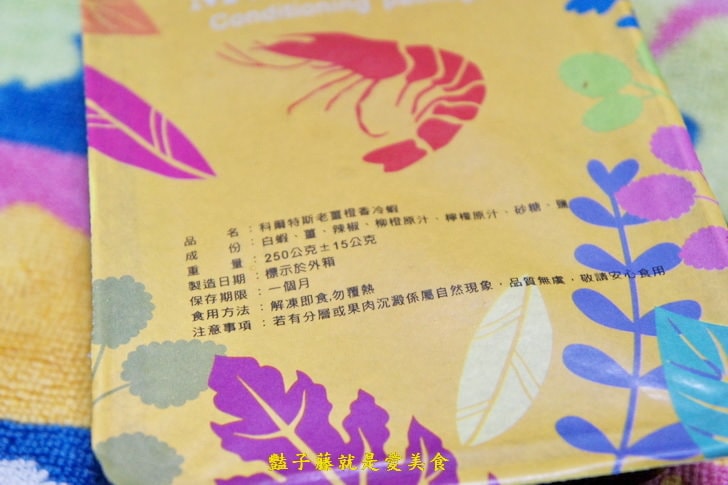 Conditioning
品　　名：科爾特斯老薑橙香冷蝦
成　　份：白蝦、薑、辣椒、柳橙原汁、檸檬原汁、砂糖、鹽
重　　量：250公克±15公克
製造日期：標示於外箱
保存期限：一個月
食用方法：解凍即食,勿覆熱
注意事項：若有分層或果肉沉澱係屬自然現象，品質無虞，敬請安心食用
豔子藤就是愛美食